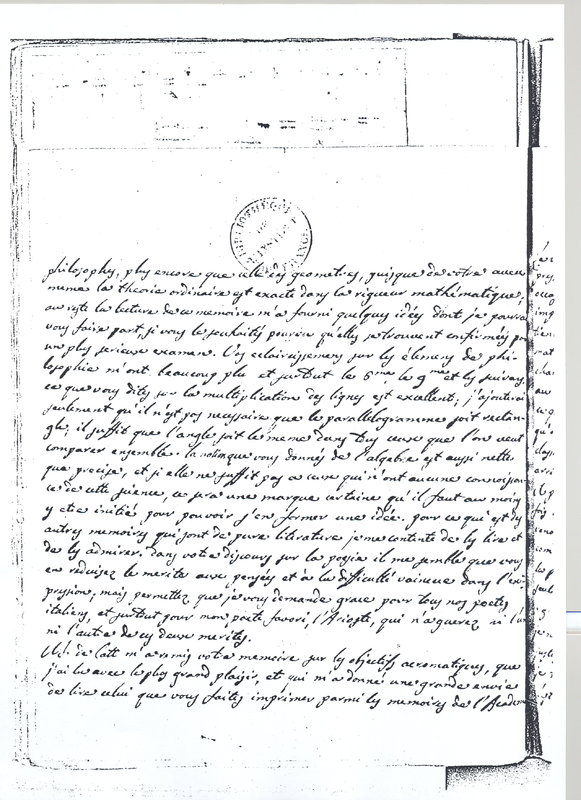 BIBLIOTHEQUE
philosophes, plus encore que celle des geometres, puisque de votre aveu
meme la theorie ordinaire est exacte dans la rigueur mathématique,
au reste la lecture de ce memoire m'a fourni quelques idées dont je pourrai
vous faire part, si vous le souhaités pourvu qu'elles se trouvent confirmées par
un plus serieux examen. Vos eclaircissemens sur les elemens de phi-
losophie m'ont beaucoup plu et surtout le 5me le 9me et les suivans
ce que vous dites sur la multiplication des lignes est excellent; j'ajouterai
seulement qu'il n'est pas necessaire que le parallelogramme soit rectan-
gle, il suffit que l'angle soit le meme dans tous ceux que l'on veut
comparer ensemble. la notion que vous donnés de l'algebre est aussi nette
que precise, et si elle ne suffit pas a ceux qui n'ont aucune connoissan-
ce de cette science, ce sera une marque certaine qu'il faut au moins
y etre initié pour pouvoir s'en former une idée. pour ce qui est des
autres memoires qui sont de pure literature je me contente de les lire et
de les admirer. dans votre discours sur la poesie il me semble que vous
en reduisez le merite aux pensées et à la difficulté vaincue dans l'ex-
pression, mais permettez que je vous demande grace pour tous nos poetes
italiens, et surtout pour mon poete favori, l'Arioste, qui n'a guerez ni l'un
ni l'autre de ces deux merites.
Mr. de Catt m'a remis votre memoire sur les objectifs acromatiques, que
j'ai lu avec le plus grand plaisir, et qui m'a donné une grande envie
de lire celui que vous faites imprimer parmi les memoires de l'Academ